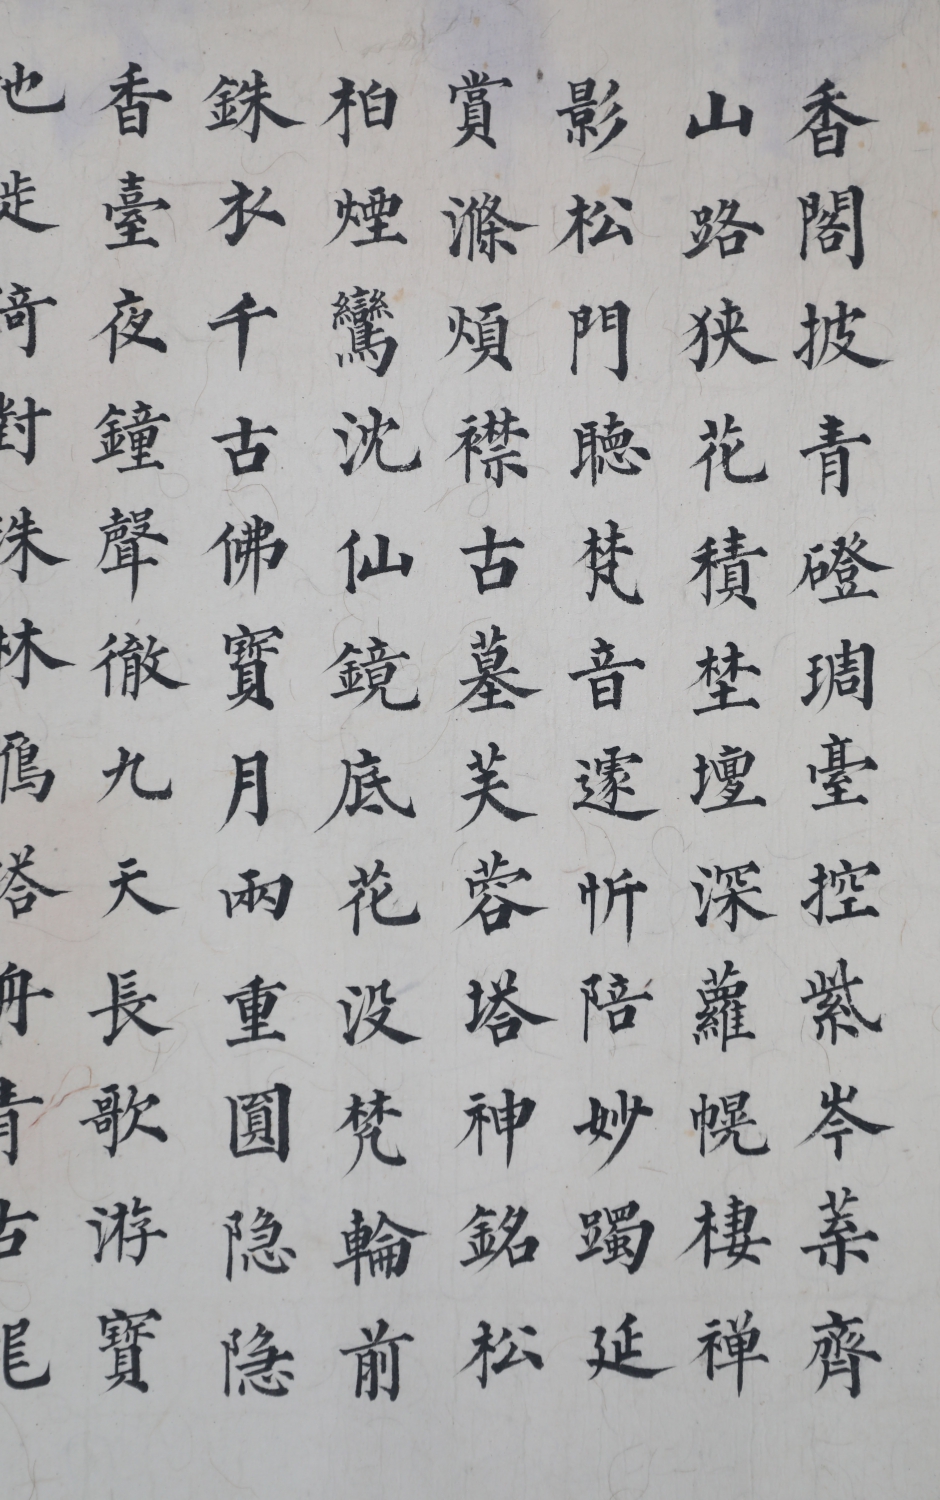 香閣披青磴琱臺控紫岑葇齊
山路狭花積埜壇深蘿幌棲禅
影松門聴梵音遽忻陪妙躅延
賞滌煩襟古墓芙蓉塔神銘松
柏煙鸞沈仙鏡底花没梵輪前
銖衣千古佛寳月兩重圓隐隐
香臺夜鐘聲徹九天長歌游寳
地徙倚對洙林鴈塔丹青古